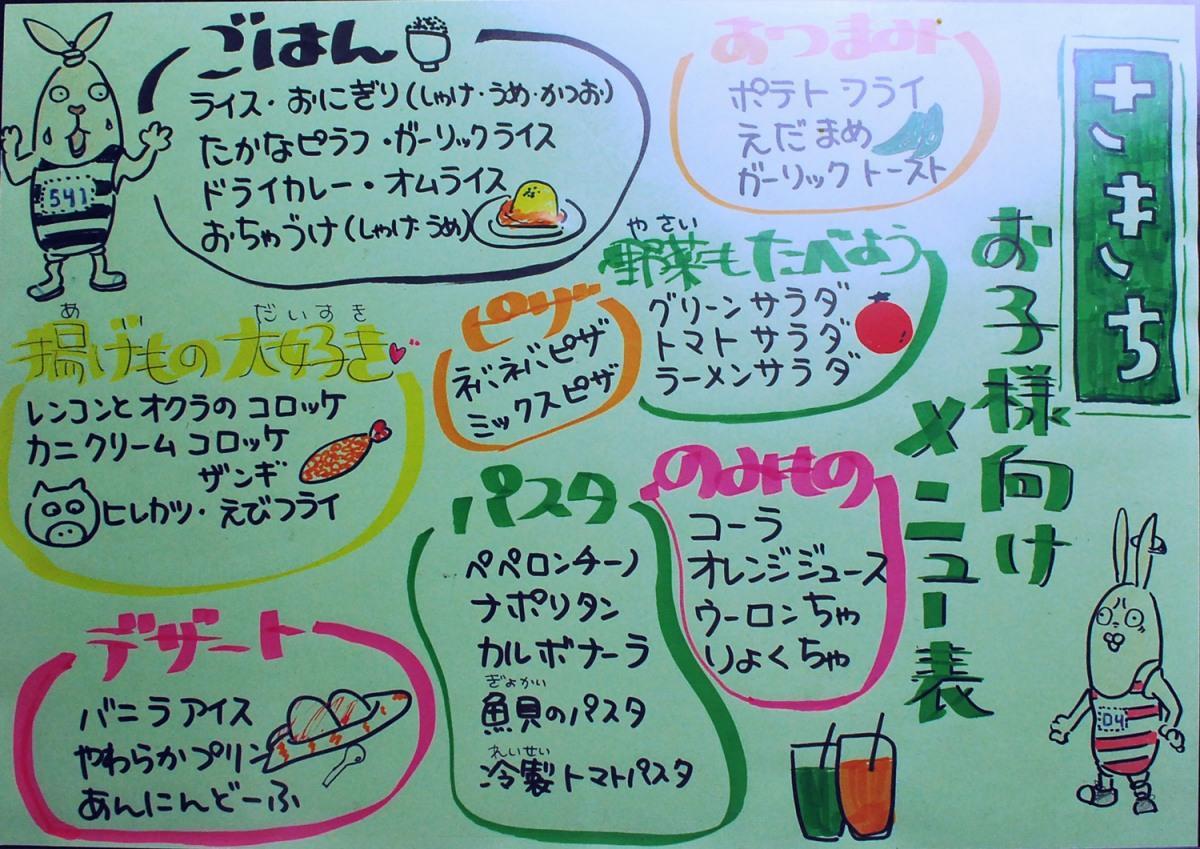 さきち
お子様向け
メニュー表
ごはん
ライス・おにぎり(しゃけ・うめ・かつお)
たかなピラフ・ガーリックライス
ドライカレー・オムライス
おちゃづけ(しゃけ・うめ)
541
おつまみ
ポテトフライ
えだまめ
ガーリックトースト
やさい
野菜もたべよう
グリーンサラダ
トマトサラダ
ラーメンサラダ
ピザ
ネバネバピザ
ミックスピザ
あ だいすき
揚げもの大好き
レンコンとオクラのコロッケ
カニクリームコロッケ
ザンギ
ヒレカツ・えびフライ
パスタ
ペペロンチーノ
ナポリタン
カルボナーラ
ぎょかい
魚貝のパスタ
れいせい
冷製トマトパスタ
のみもの
コーラ
オレンジジュース
ウーロンちゃ
りょくちゃ
デザート
バニラアイス
やわらかプリン
あんにんどーふ
04